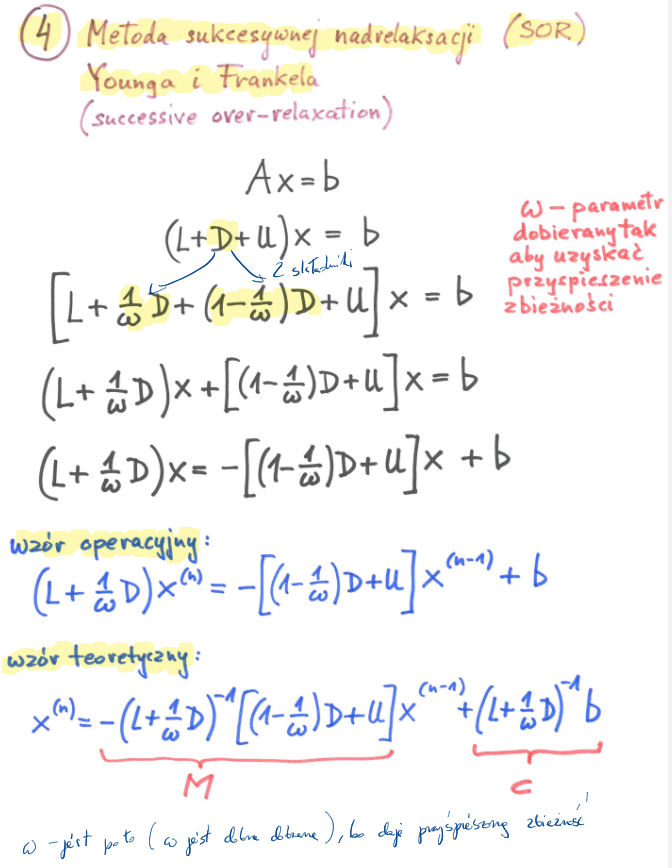 4 Metoda sukcesywnej nadrelaksacji (SOR)
Younga i Frankela
(successive over-relaxation)
Ax = b
(L+D+U)x = b
ω – parametr
dobierany tak
aby uzyskać
przyspieszenie
zbieżności
2 składniki
[L + 1/ω D + (1-1/ω)D + U] x = b
(L + 1/ω D)x + [(1-1/ω)D+U]x = b
(L + 1/ω D)x = -[(1-1/ω)D+U]x + b
wzór operacyjny:
(L + 1/ω D)x^(n) = -[(1-1/ω)D+U]x^(n-1) + b
wzór teoretyczny:
x^(n) = -(L+1/ω D)^-1 [(1-1/ω)D+U]x^(n-1) + (L+1/ω D)^-1 b
M C
ω - jest po to (ω jest dobrze dobrane), bo daje przyśpieszoną zbieżność!